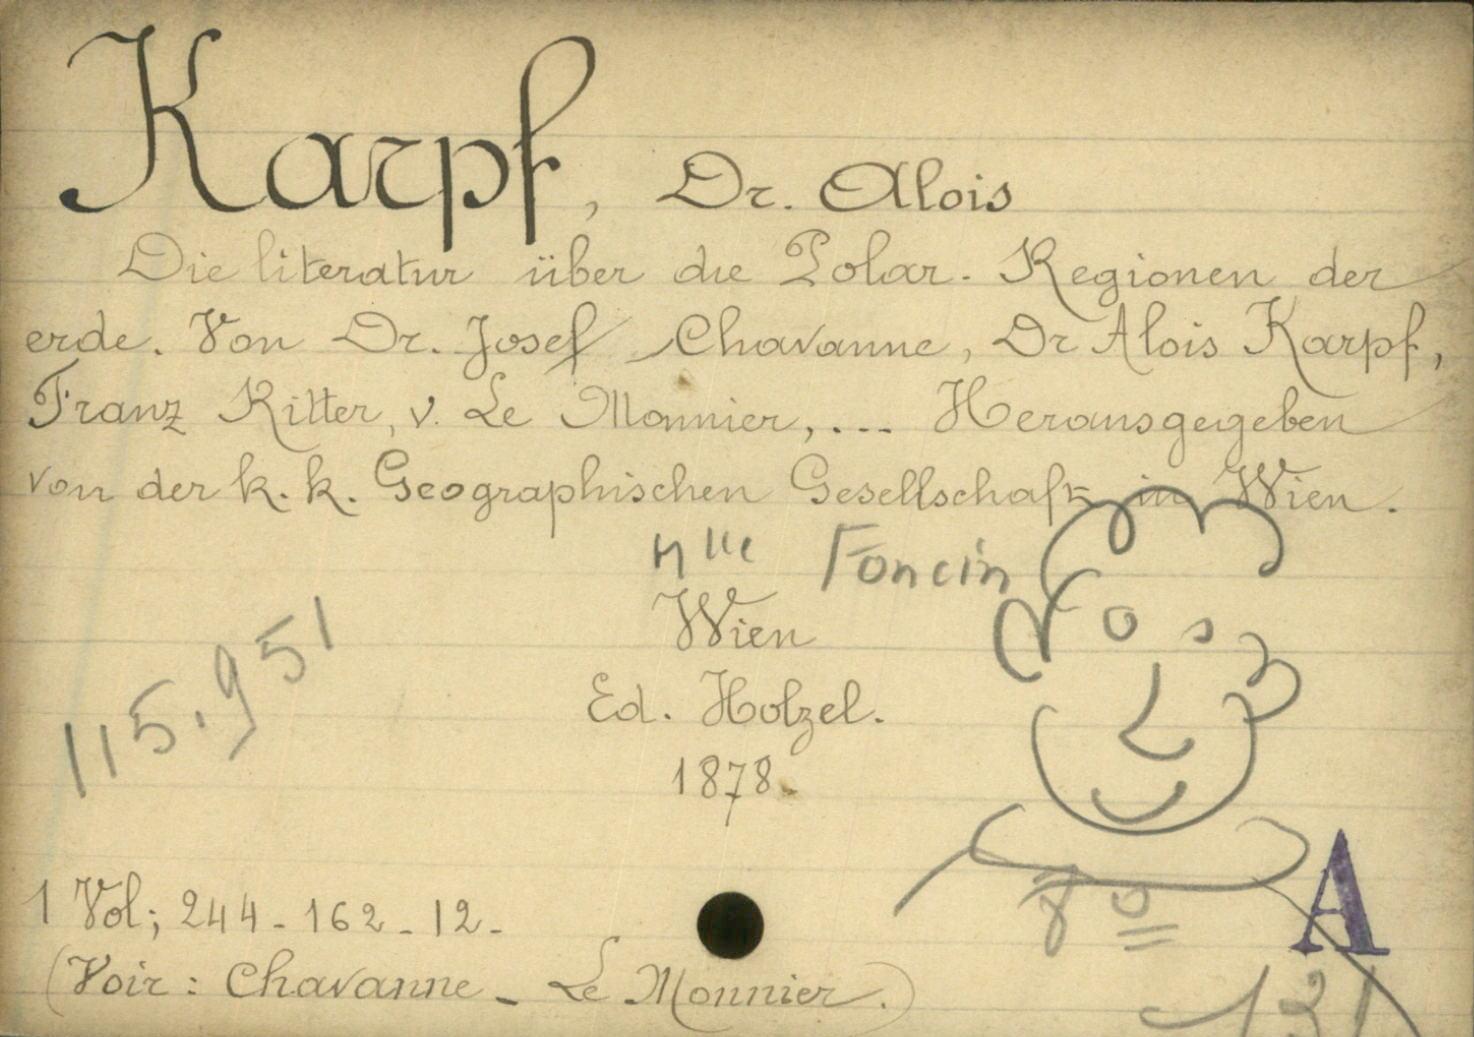 Karpf, Dr. Alois
Die literatur über die Polar-Regionen der
erde. Von Dr. Josef Chavanne, Dr Alois Karpf,
Franz Ritter, v. Le Monnier, .... Herausgegeben
von der k. k. Geographischen Gesellschaft in Wien.
Mlle Foncin
Wien
Ed. Holzel.
1878.
115.951
1 Vol; 244-162-12-
(Voir: Chavanne - Le Monnier.)
A